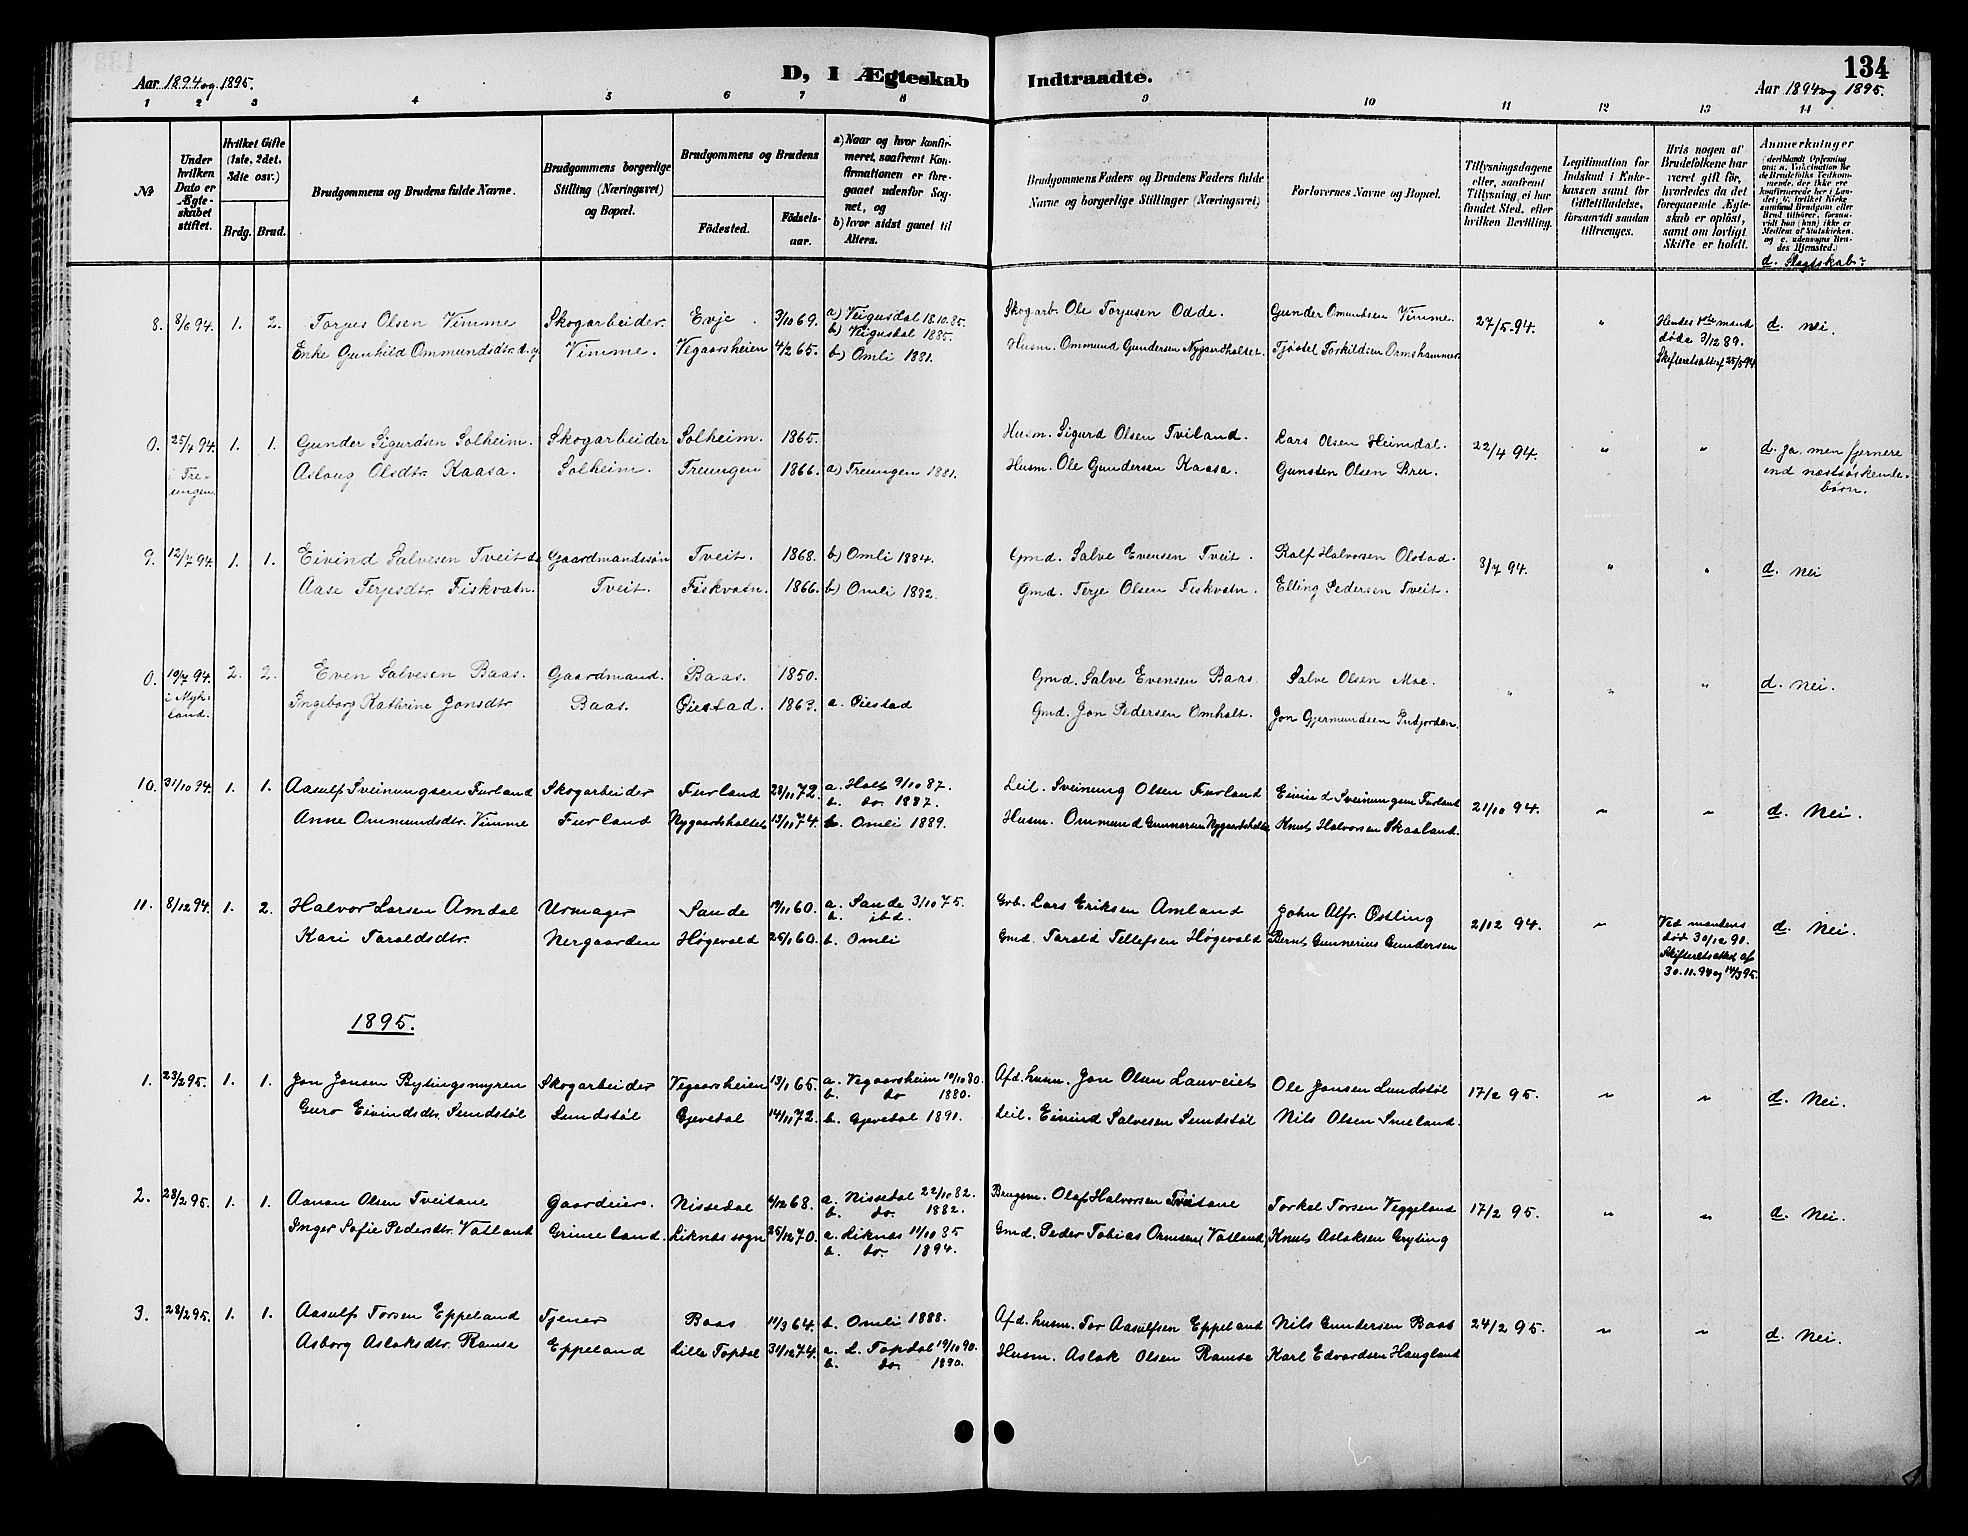 134
Aar 1894 og 1895.
D, I Ægteskab Indtraadte.
Aar 1894 og 1895.
1 2 3 4 5 6 7 8 9 10 11 12 13 14
№
Under hvilken Dato er Ægteskabet stiftet.
Hvilket Gifte (1ste, 2det, 3die osv.)
Brdg. Brud.
Brudgommens og Brudens fulde Navne.
Brudgommens borgerlige Stilling (Næringsvei) og Bopæl.
Brudgommens og Brudens
Fødested.
Fødselsaar.
a) Naar og hvor konfirmeret, saafremt Konfirmationen er foregaaet udenfor Sognet, og
b) hvor sidst gaaet til Alters.
Brudgommens Faders og Brudens Faders fulde Navne og borgerlige Stillinger (Næringsvei)
Forlovernes Navne og Bopæl.
Tillysningsdagene eller, saafremt Tillysning ei har fundet Sted, efter hvilken Bevilling.
Legitimation for Indskud i Enkekassen samt for Giftetilladelse, forsaavidt saadan tiltrænges.
Hvis nogen af Brudefolkene har været gift før, hvorledes da det foregaaende Ægteskab er opløst, samt om lovligt Skifte er holdt.
Anmerkninger
d. Slegtskab?
8. 8/6 94. 1. 2. Torjus Olsen Vimme Skogarbeider. Evje. 3/10 69. a) Veigusdal 18.10.85. Skogarb. Ole Torjusen Odde. Gunder Omundsen Vimme. 27/5.94. " Hendes 1ste mand d. nei.
b) Veigusdal 1885.
Enke Gunhild Ommundsdtr. Vimme. Vegaarsheien 4/2 65. b) Omli 1881. Husm. Ommund Gundersen Nygaardholtet. Tjøstel Torkildsen Ormshammer døde 3/12 89.
Skifteretsatt. af 25/5 94
0. 25/4 94. 1. 1. Gunder Sigurdsen Solheim. Skogarbeider Solheim. 1865. Husm. Sigurd Olsen Tviland. Lars Olsen Heimdal. 22/4 94. " " d. ja, men fjernere
i Treungen Aslaug Olsdtr. Kaasa. Solheim. Treungen 1866. a) Treungen 1881. Husm. Ole Gundersen Kaasa. Gunsten Olsen Bru. end næstsøskendebørn.
9. 12/7 94. 1. 1. Eivind Salvesen Tveit Gaardmandssøn Tveit. 1868. b) Omli 1884. Gmd. Salve Evensen Tveit. Ralf Halvorsen Olstad. 8/7 94. " " d. nei
Aase Terjesdtr. Fiskvatn. Tveit. Fiskvatn. 1866. b) Omli 1882. Gmd. Terje Olsen Fiskvatn. Elling Pedersen Tveit.
0. 19/7 94. 2. 2. Even Salvesen Baas. Gaardmand. Baas. 1850. Gmd. Salve Evensen Baas. Salve Olsen Moe. " " " d. nei.
i Mykland. Ingeborg Kathrine Jonsdtr. Baas. Øiestad. 1863. a. Øiestad Gmd. Jon Pedersen Omholt. Jon Gjermundsen
10. 31/10 94. 1. 1. Aasulf Sveinungsen Furland Skogarbeider Furland 28/11 72. a. Holt 9/10 87. Leil. Sveinung Olsen Furland Eivind Sveinungsen Furland 21/10 94. " " d. Nei.
b. do 1887.
Anne Ommundsdtr. Vimme Furland Nygaardsholtet 13/11 74. b. Omli 1889. Husm. Ommund Gunnersen Nygaardsholtet Knut Halvorsen Skaaland.
11. 8/12 94. 1. 2. Halvor Larsen Amdal Urmager Sande 19/11 60. a. Sande 3/10 75. Grb. Lars Eriksen Amland John Alfr. Østling 2/12 94. " Ved mandens d. Nei.
b. ibd.
Kari Taraldsdtr. Nergaarden Høgevold 25/1 60. b. Omli Gmd. Tarald Tellefsen Høgevold Bernt Gunnerius Gundersen død 30/12 90.
Skifteretsattest af
30.11.94 og 14/3 95.
1895.
1. 23/2 95. 1. 1. Jon Jonsen Bytingsmyren Skogarbeider Vegaarsheien 13/1 65. a. Vegaarsheien 10/10 80. Afd. husm. Jon Olsen Lauveiet Ole Jonsen Lundstøl 17/2 95. " " d. Nei.
b. do 1880.
Guro Eivindsdtr. Sundstøl Lundstøl Gjevedal 14/11 72. b. Gjevedal 1891. Leil. Eivind Salvesen Sundstøl Nils Olsen Smeland.
2. 28/2 95. 1. 1. Aanon Olsen Tveitane Gaardeier. Nissedal 6/12 68. a. Nissedal 22/10 82. Brugsm. Olaf Halvorsen Tveitane Torkel Torsen Veggeland 17/2 95. " " d. Nei.
b. do. 1882.
Inger Sofie Pedersdtr. Vatland Grimeland. Liknes sogn 25/12 70. a. Liknes 11/10 85 Gmd. Peder Tobias Ormsen Vatland, Knut Aslaksen Gryting
b. do. 1894.
3. 28/2 95. 1. 1. Aasulf Torsen Eppeland Tjener Baas 11/3 64. b. Omli 1888. Afd. husm. Tor Aasulfsen Eppeland Nils Gundersen Baas 24/2 95. " " d. Nei.
Asborg Aslaksdtr. Ramse Eppeland Lille Topdal 31/12 74. a. L. Topdal 19/10 90. Husm. Aslak Olsen Ramse Karl Edvardsen Haugland
b. do. 1890.